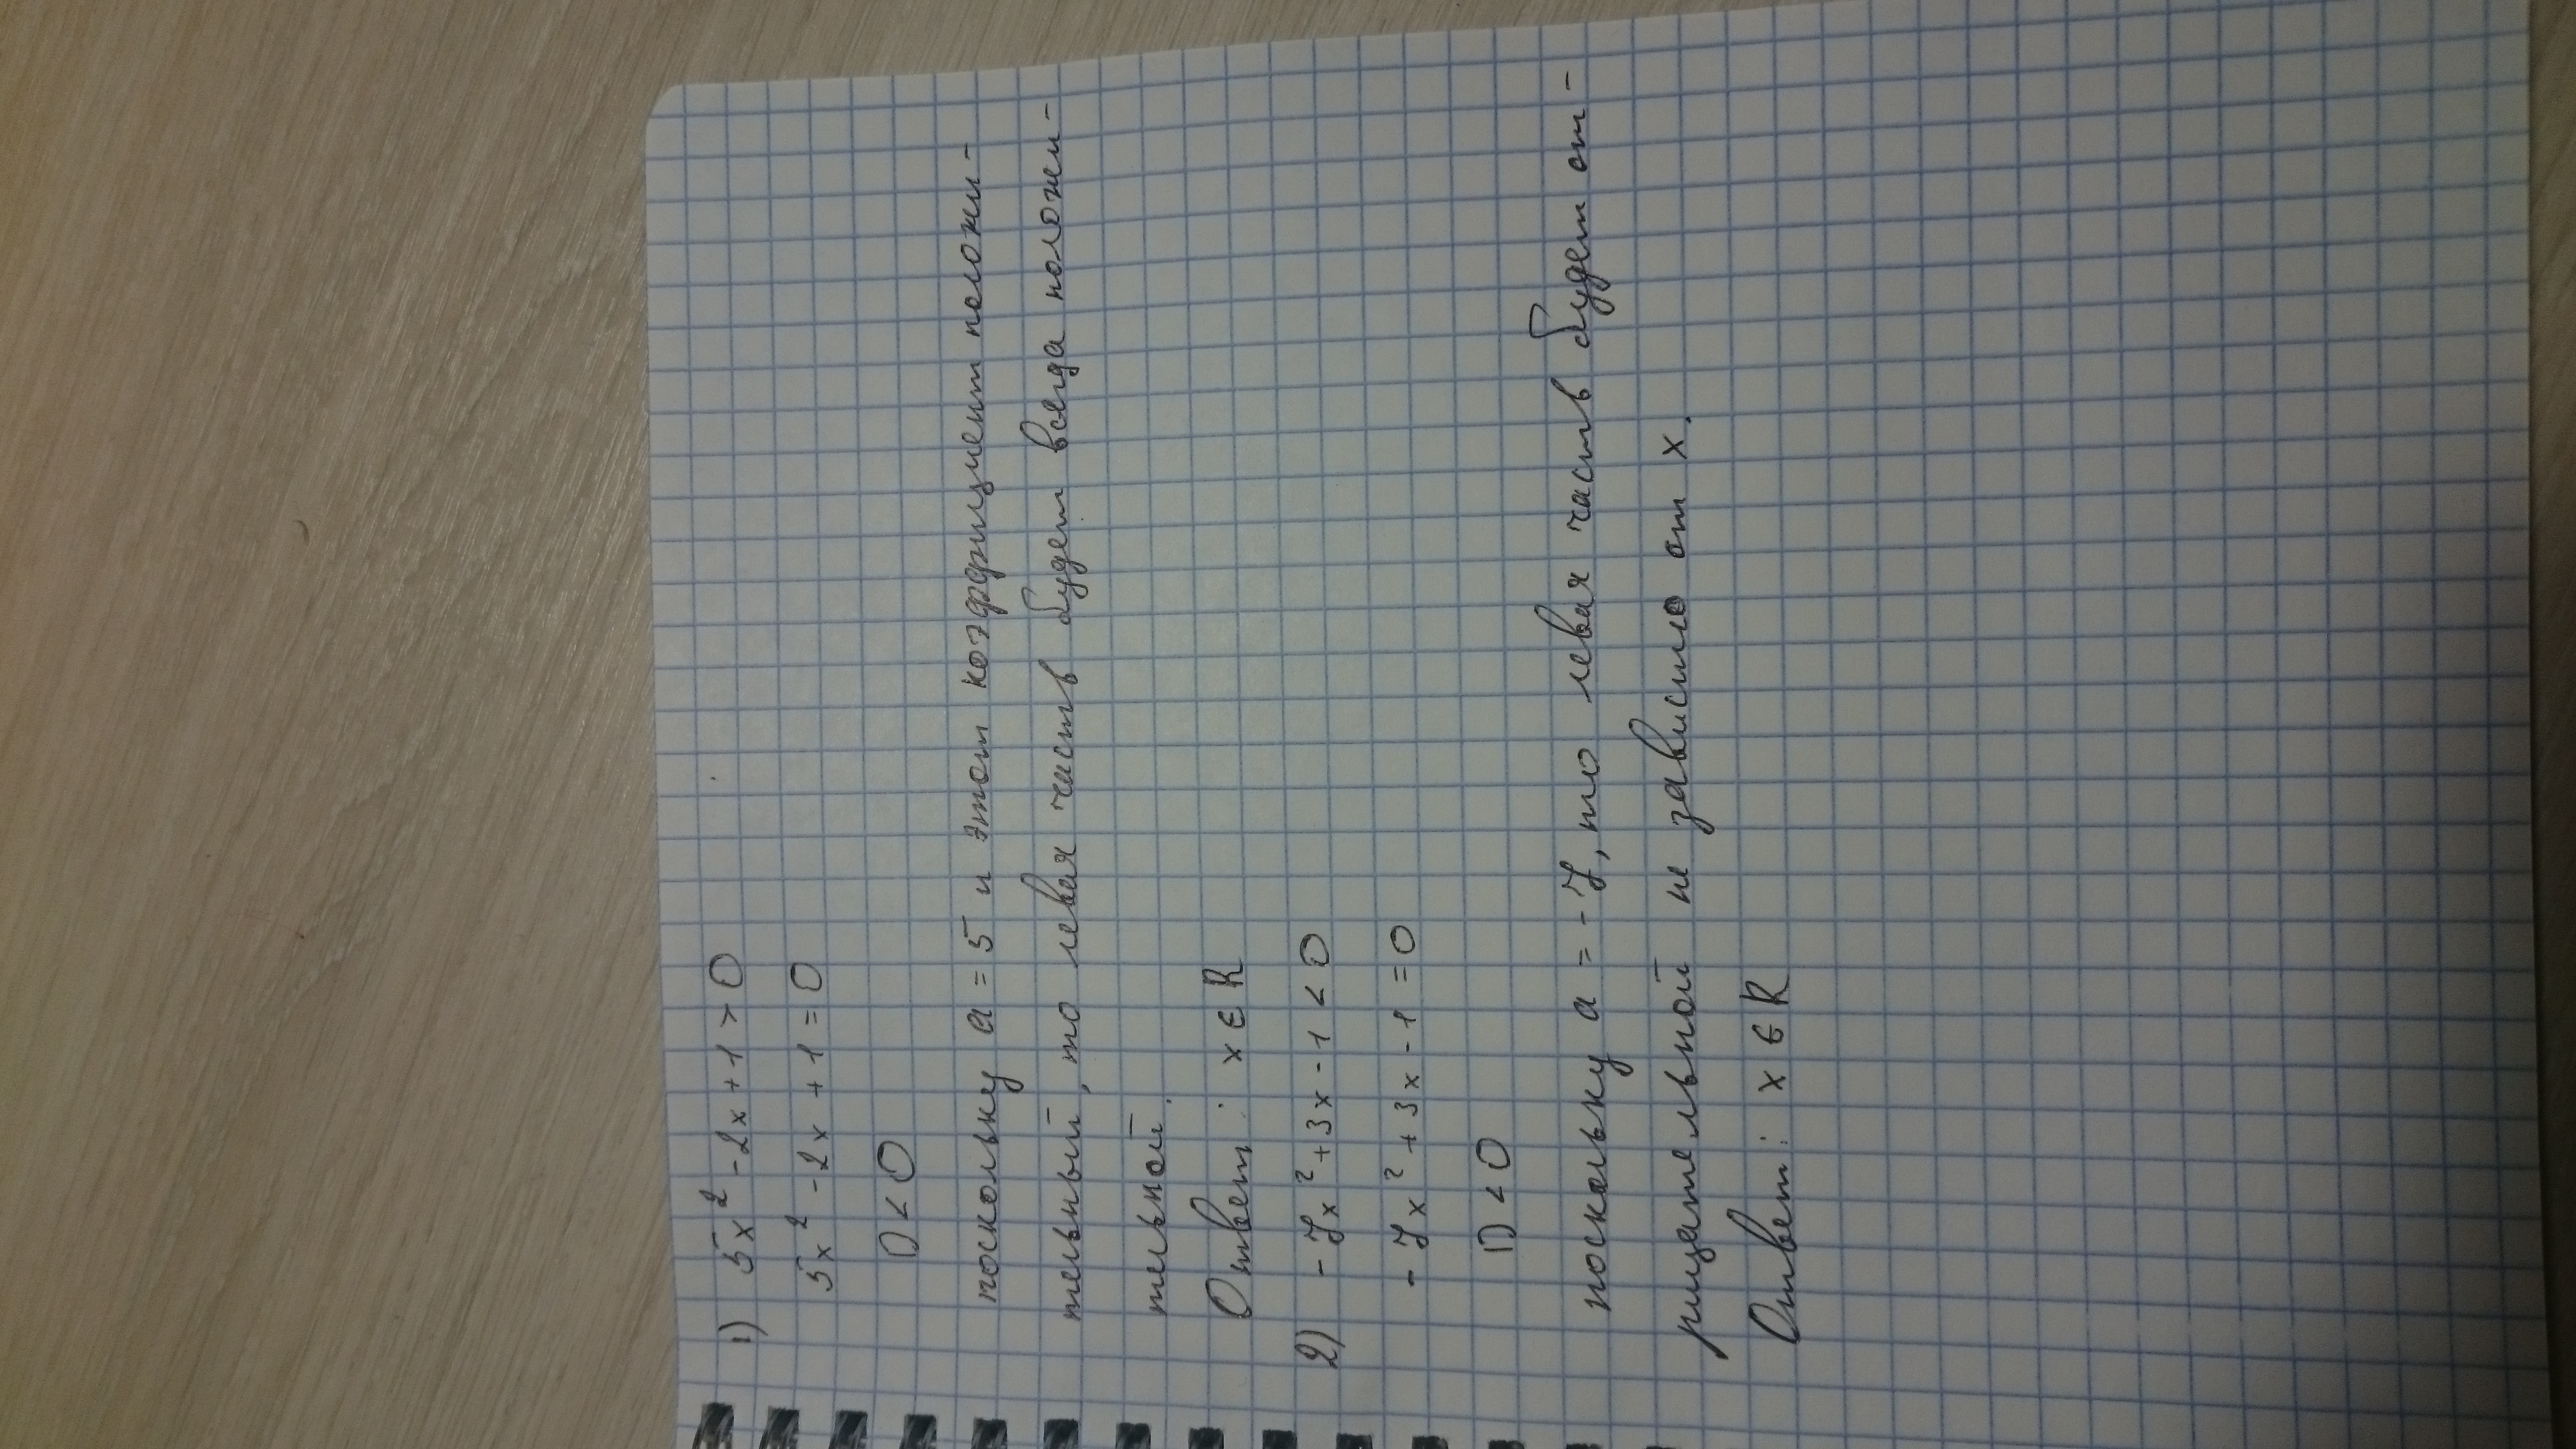 1) 5x² - 2x + 1 > 0
5x² - 2x + 1 = 0
D < 0
поскольку a = 5 и этот коэффициент положи-
тельный, то левая часть будет всегда положи-
тельной.
Ответ: x ∈ R
2) - 7x² + 3x - 1 < 0
- 7x² + 3x - 1 = 0
D < 0
поскольку a = - 7, то левая часть будет от-
рицательной не зависимо от x.
Ответ: x ∈ R